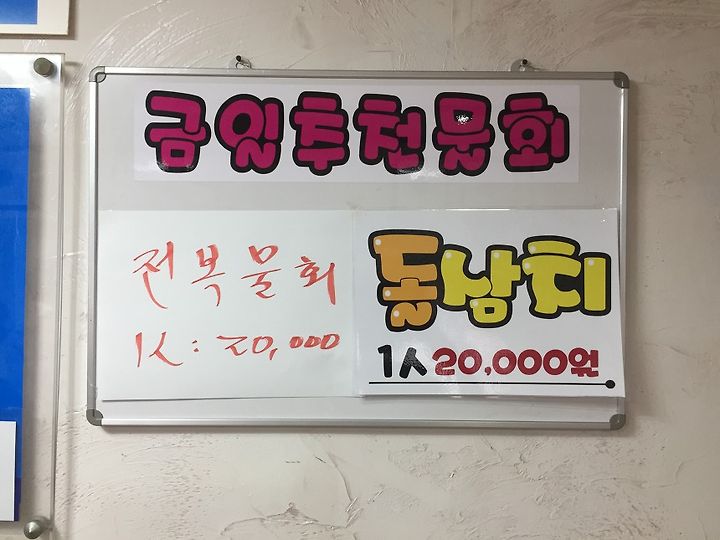 금일추천물회
전복물회
1人: 20,000
돌삼치
1人 20,000원